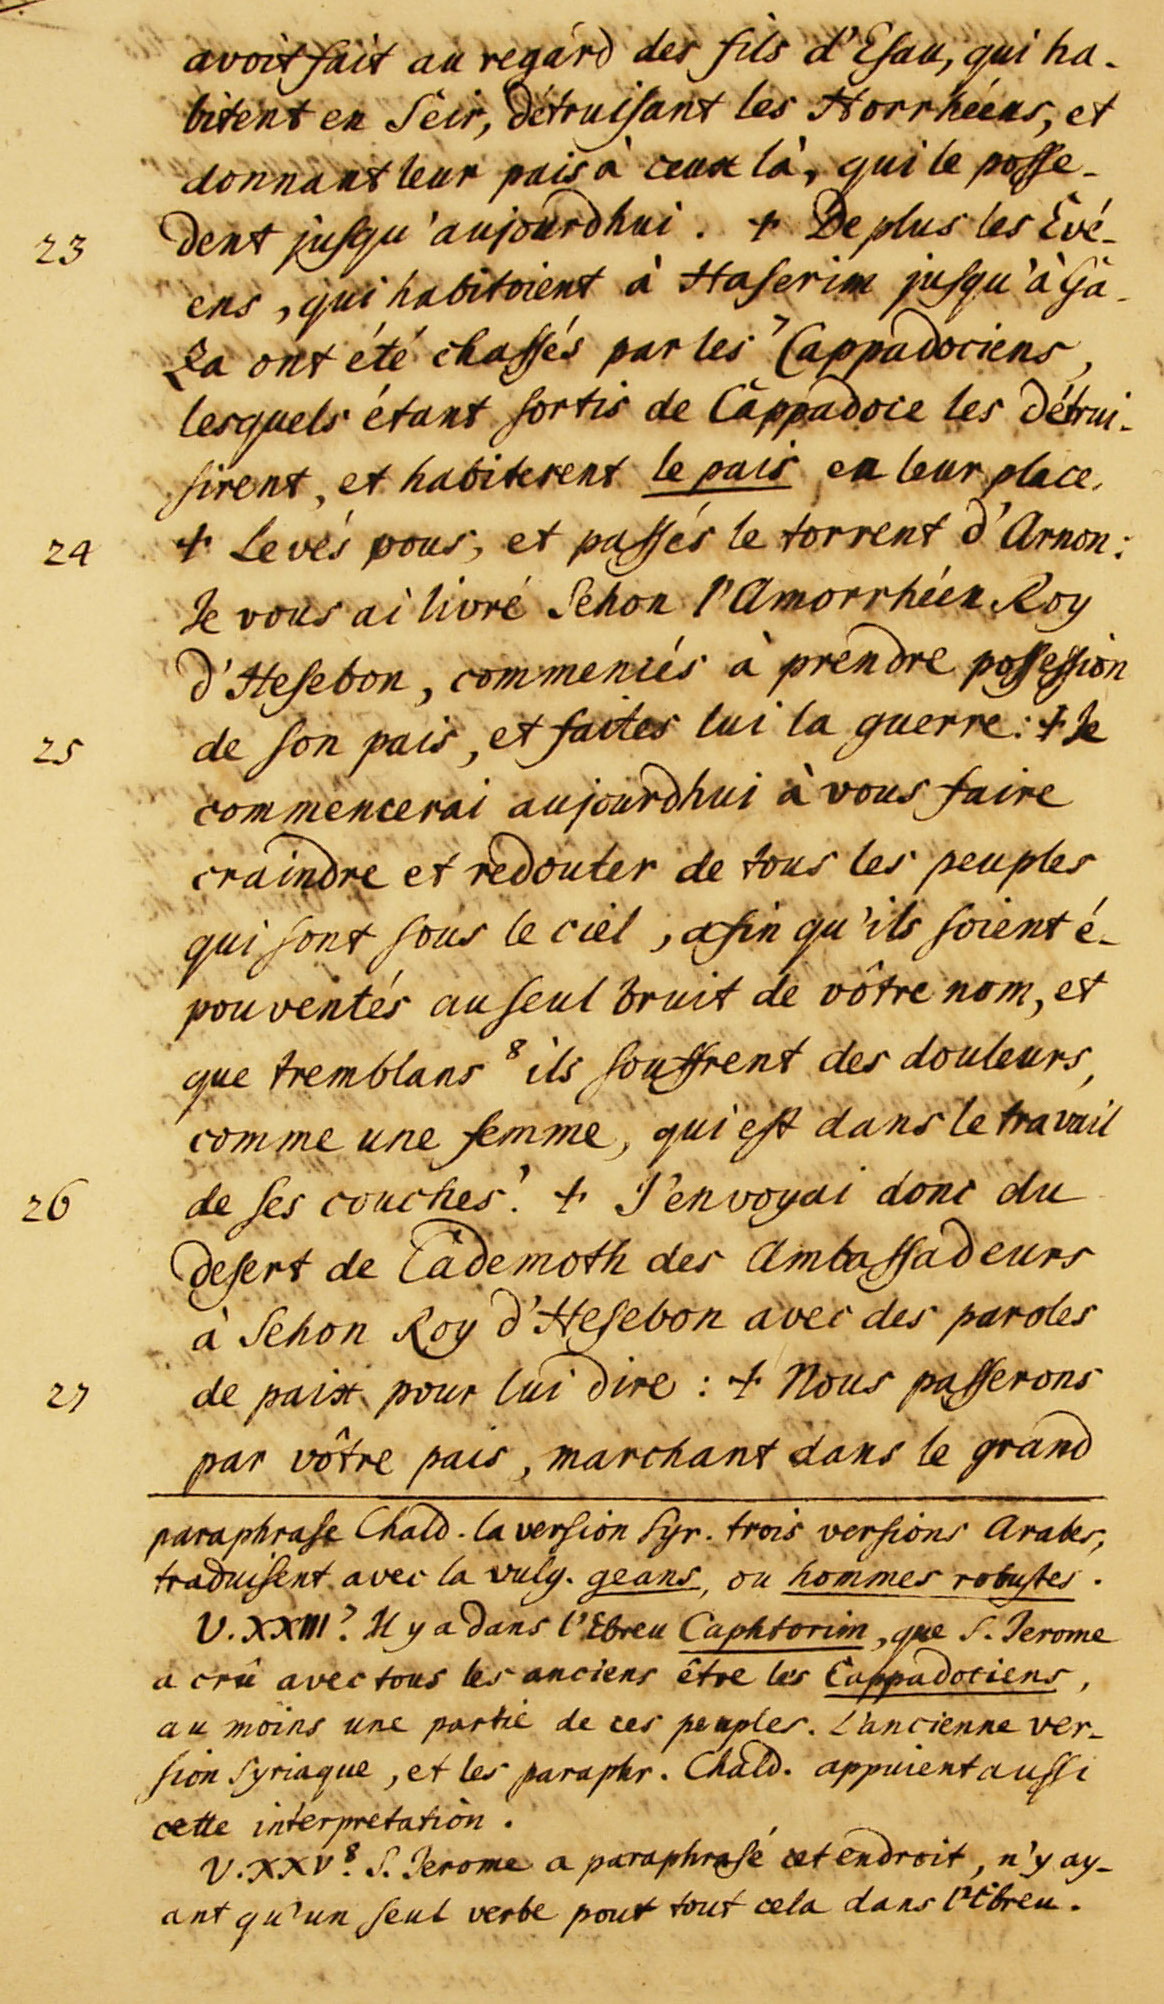 avoit fait au regard des fils d'Esau, qui ha-
bitent en Seir, détruisant les Horrhéens, et
donnant leur païs à ceux là, qui le posse-
23 dent jusqu'aujourdhui. + De plus les Evé-
ens, qui habitoient à Haserim jusqu'à Ga-
za ont été chassés par les ⁷ Cappadociens,
lesquels étant sortis de Cappadoce les détrui-
sirent, et habiterent le païs en leur place.
24 + Levés vous, et passés le torrent d'Arnon:
Je vous ai livré Sehon l'Amorrhéen Roy
d'Hesebon, commencés à prendre possession
25 de son païs, et faites lui la guerre: + Je
commencerai aujourdhui à vous faire
craindre et redouter de tous les peuples
qui sont sous le ciel, afin qu'ils soient é-
pouventés au seul bruit de vôtre nom, et
que tremblans ⁸ ils souffrent des douleurs,
comme une femme, qui est dans le travail
26 de ses couches. + J'envoyai donc du
desert de Cademoth des Ambassadeurs
à Sehon Roy d'Hesebon avec des paroles
27 de paix pour lui dire: + Nous passerons
par vôtre païs, marchant dans le grand
paraphrase Chald. la version Syr. trois versions Arabes,
traduisent avec la vulg. geans, ou hommes robustes.
V. XXIII ⁷. Il y a dans l'Ebreu Caphtorim, que S. Jerome
a crû avec tous les anciens être les Cappadociens,
au moins une partie de ces peuples. L'ancienne ver-
sion Syriaque, et les paraphr. Chald. appuient aussi
cette interpretation.
V. XXV ⁸. S. Jerome a paraphrasé cet endroit, n'y ay-
ant qu'un seul verbe pour tout cela dans l'Ebreu.